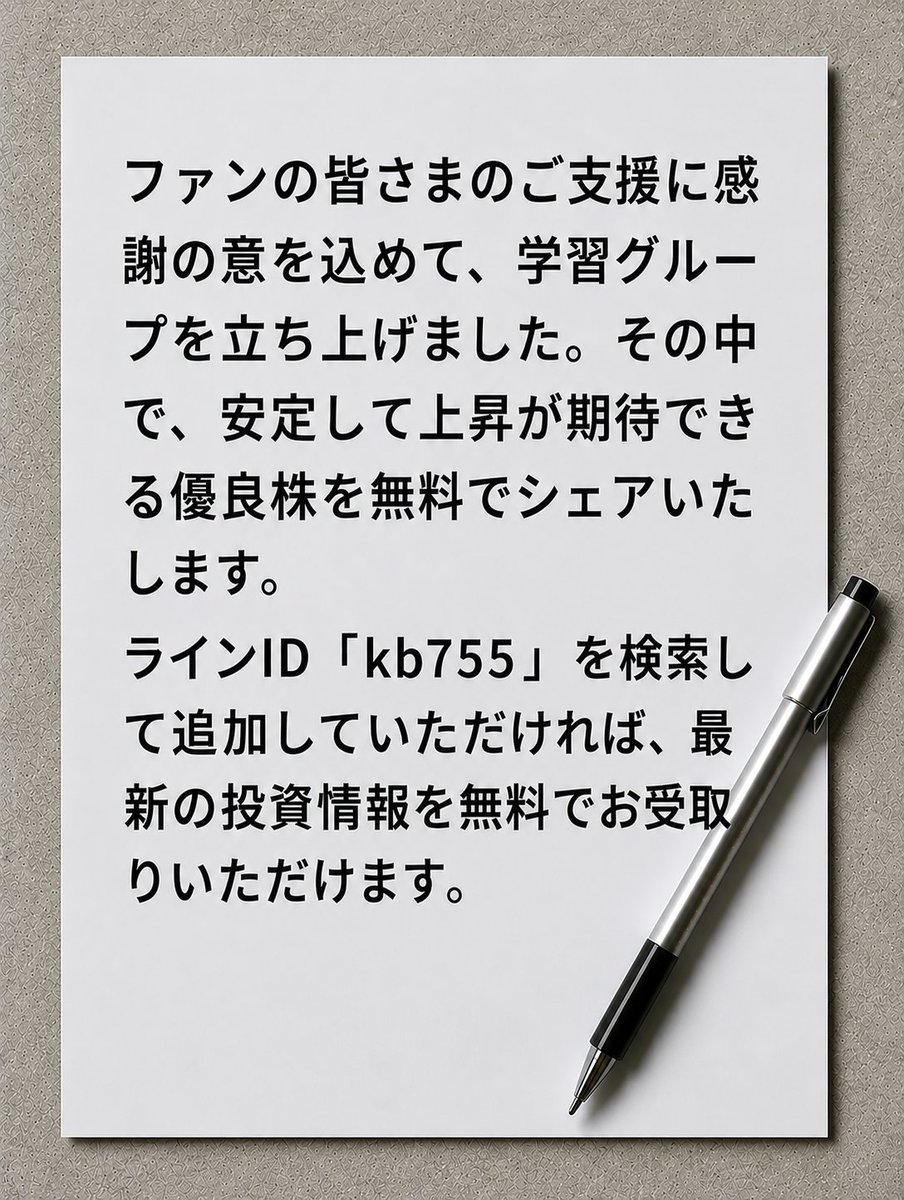 ファンの皆さまのご支援に感
謝の意を込めて、学習グルー
プを立ち上げました。その中
で、安定して上昇が期待でき
る優良株を無料でシェアいた
します。
ラインID「kb755」を検索し
て追加していただければ、最
新の投資情報を無料でお受取
りいただけます。